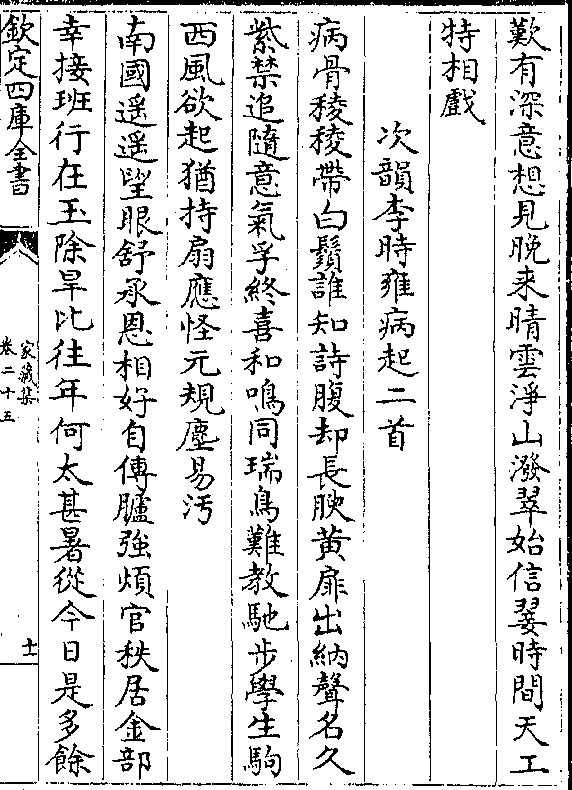 歎有深意想見晚来晴雲淨山潑翠始信翣時間天工
特相戲
次韻李時雍病起二首
病骨稜稜帶白鬚誰知詩腹却長腴黄扉出納聲名久
紫禁追隨意氣孚終喜和鳴同瑞鳥難教馳步學生駒
西風欲起猶持扇應怪元規塵易汚
南國遥遥望眼舒承恩相好自傳臚強煩官秩居金部
幸接班行在玉除旱比往年何太甚暑從今日是多餘
欽定四庫全書
家藏集
卷二十五
十一